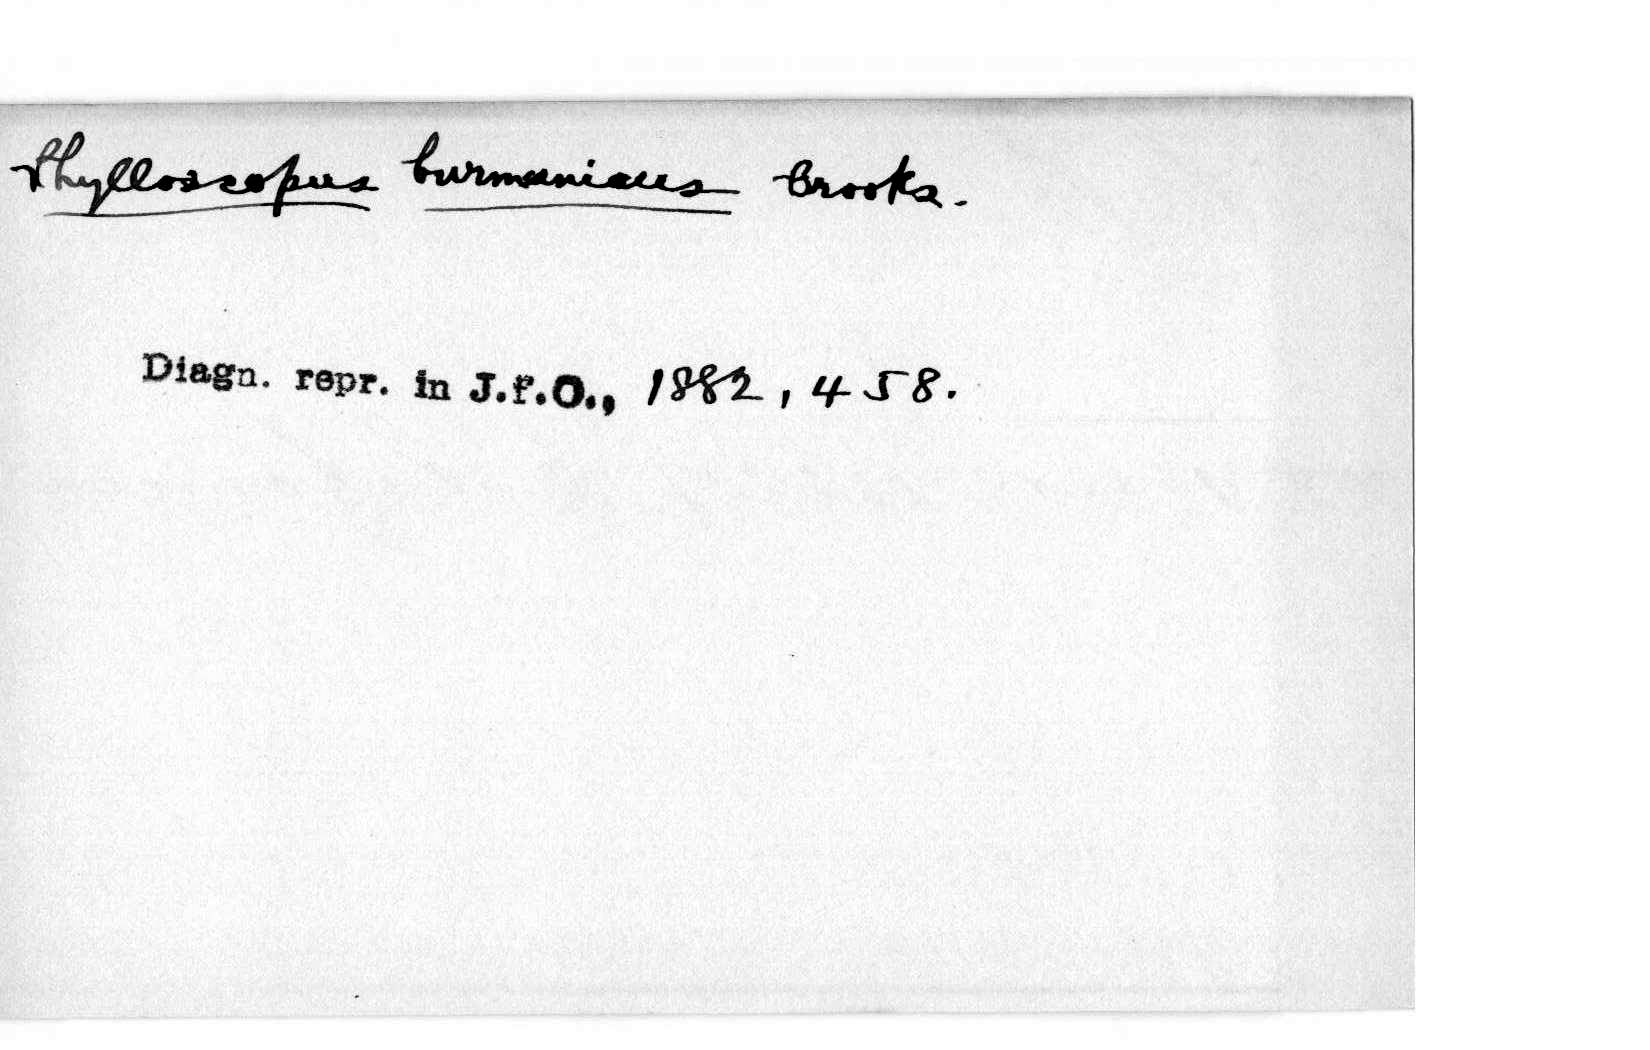 Phylloscopus burmanicus Brooks.
Diagn. repr. in J.f.O., 1882, 458.